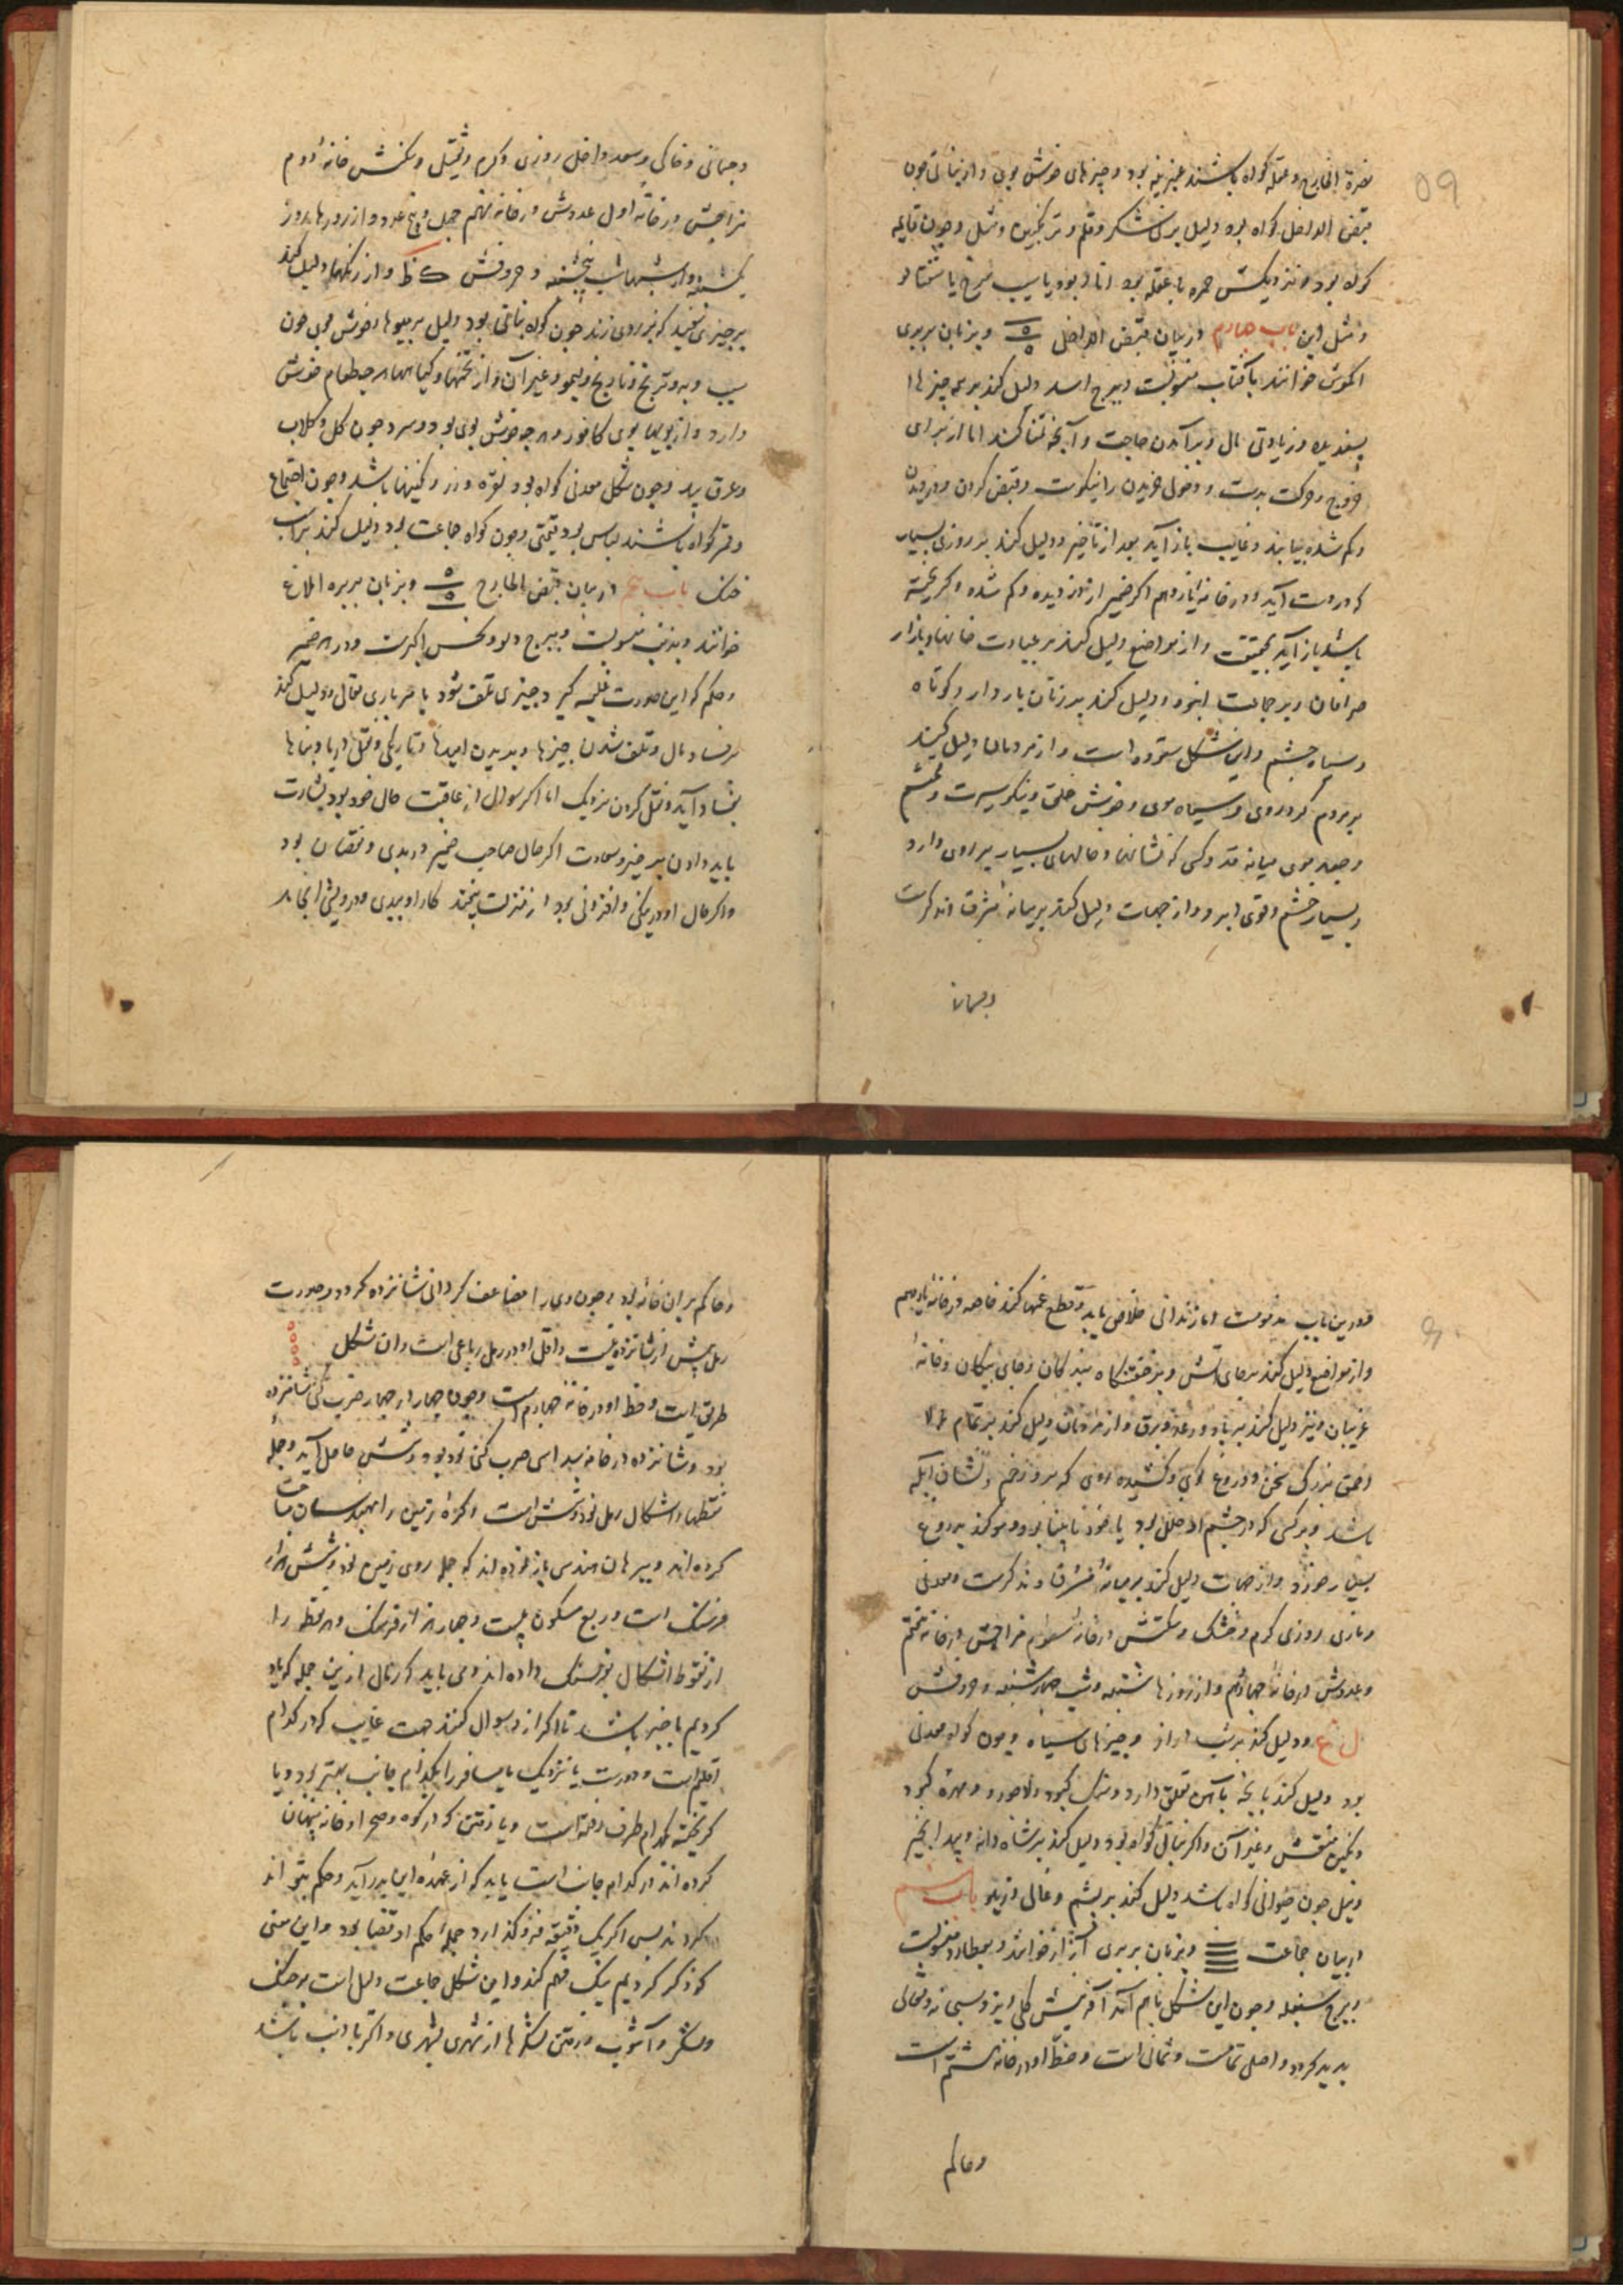 ۵۹
نصرة الخارج و عقله گواه باشند غیزینه بود و چیزهای خوش بوی و از نباتی چون
قبض الداخل گواه بود دلیل بر نی شکر و قلم و ترنجبین و مثل و چون قایمه
گواه بود و نزدیکش حمره با عقله بود انار بود یا سیب سرخ یا شفتالو
و مثل این باب چهارم در بیان قبض الداخل و بزبان بربری
اکوش خوانند بآفتاب منسوبست و ببرج اسد دلیل کند بر همه چیزها
پسندیده و زیادتی مال و برآمدن حاجت و آنچه تمنا کنند اما از برای
خروج و حرکت بدست و دخول خریدن را نیکوست و قبض کردن و دزدیدن
و گم شده بیابند و غایب باز آید بعد از تأخیر و دلیل کند بر روزی بسیار
که در دست آید و در خانه یازدهم اگر ضمیر از دزدیده و گم شده و گریخته
باشد باز آید بحقیقت و از مواضع دلیل کند بر عبادت خانها و بازار
صرافان و بر جماعت انبوه و دلیل کند بر زنان باردار و کوتاه
و سیاه چشم و این شکل ستوده است و از مردمان دلیل کند
بر مردم گردروی و سیاه موی و خوش خلق و نیکو سیرت و
و جعد موی میانه قد و کسی که نشانها و خالهای بسیار بر روی دارد
و بسیار خشم و قوی ابرو و از جهات دلیل کند بر میانه مشرق اندکرست
وجهانی
و جهانی و خاکی و سعد داخل روزی و کرم و ثقیل و مکنش خانه دوم
مزاجش در خانه اول عددش در خانه نهم چهل و پنج عدد و از روزها روز
یکشنبه و از شبها شب پنجشنبه و حروفش ک ظ و از رنگها دلیل کند
بر چیزی سفید که بزردی زند چون گواه نباتی بود دلیل بر میوهاء خوش بوی چون
سیب و به و ترنج و نارنج و لیمو و غیر آن و از تخمها و گیاهها هر چه طعام خوش
دارد و از بویها بوی کافور و هر چه خوش بوی بود و سرد چون گل و گلاب
و عرق بید و چون شکل معدنی گواه بود نقره و زر و نگینها باشد و چون اجتماع
و قمر گواه باشند لباس بود قیمتی و چون گواه جماعت بود دلیل کند بر اسب
خنک باب پنجم در بیان قبض الخارج و بزبان بربره املاغ
خوانند و بذنب منسوبست و ببرج دلو و نحس اکبرست و در هر ضمیر
و حکم که این صورت غلبه گیرد چیزی تلف شود یا مرباری تعالی و دلیل کند
بر فساد مال و تلف شدن چیزها و بریدن امیدها و تاریکی و نقل دریا و بناها
بفساد آید و نقل کردن نزدیک اما اگر سوال از عاقبت حال خود بود بشارت
باید دادن بر خیر و سعادت اگر حال صاحب ضمیر در بدی و نقصان بود
و اگر حال او در نیکی و افزونی بود از منزلت بیفتد کار او ببدی و درویشی انجامد
۶۰
و در بن باب مذمومست اما زندانی خلاص یابد و قطع غمها کند خاصه در خانه یازدهم
و از مواضع دلیل کند بر جای آتش و بر خفتنگاه بندگان و جای بیگان و خانه
غریبان و نیز دلیل کند بر باد و رعد و برق و از مردمان دلیل کند بر تمام
احمق بزرگ سخن و دروغ گوی و کشیده روی که برو زخم و نشان آبله
باشد و بر کسی که در چشم او خلل بود یا خود نابینا بود و سوگند بدروغ
بسیار خورد و از جهات دلیل کند بر میانه مشرق اندکرست و معدنی
و ناری روزی گرم و خشک و سکنش در خانه سوم مزاجش در خانه هفتم
و عددش در خانه چهاردهم و از روزها شنبه و شب چهارشنبه و حروفش
ل غ و دلیل کند بر شب دراز و چیزهای سیاه و چون گواه معدنی
بود دلیل کند بانچه بآهن تعلق دارد و سنگ کبود و لاجورد و مهره کبود
و نگین منقش و غیر آن و اگر نباتی گواه بود دلیل کند بر شاه دانه و بید انجیر
و نیل چون حیوانی گواه باشد دلیل کند بر پشم و غالی و زیلو باب ششم
در بیان جماعت و بزبان بربری آزاز خوانند و بعطارد منسوبست
و ببرج سنبله و چون این شکل باهم آمد آفرینش کلی ایزد سبحانه و تعالی
پدید کرد و اصلی تمامست و ثمانی است و حظ او در خانه ششم است
و حاکم
و حاکم بر آن خانه بود و چون وی را مضاعف گردانی شانزده گردد و صورت
رمل بیش از شانزده نیست و اقل او در رمل رباعی است و آن شکل
طریق است و حظ او در خانه چهارم است و چون چهار در چهار ضرب کنی شانزده
بود و شانزده در خانه بید اس ضرب کنی نود بود و شش حاصل آید و جمله
نقطهاء اشکال رمل نود و شش است و کره زمین را مهندسان مساحت
کرده اند و ببرهان هندسی باز نموده اند که جمله روی زمین نود و شش هزار
فرسنگ است و ربع مسکون بیست و چهار هزار فرسنگ و هر نقطه را
از نقوط اشکال فرسنگ داده اند و می باید که رمال ازین جمله که یاد
کردیم با خبر باشد تا اگر از و سوال کنند جهت غایب که در کدام
اقلیم است و دورست یا نزدیک یا مسافر را بکدام جانب بهتر بود و یا
گریخته بکدام طرف رفته است و یا دفین که در کوه و صحرا و خانه پنهان
کرده اند در کدام جانب است باید که از عهده این بدر آید و حکم بتواند
کردند پس اگر یک دقیقه فرو گذارد جمله احکم او قضا بود و این معنی
که ذکر کردیم نیک فهم کند و این شکل جماعت دلیل است بر جنگ
و لشکر و آشوب و رفتن لشکرها از شهری بشهری و اگر با ذنب باشد